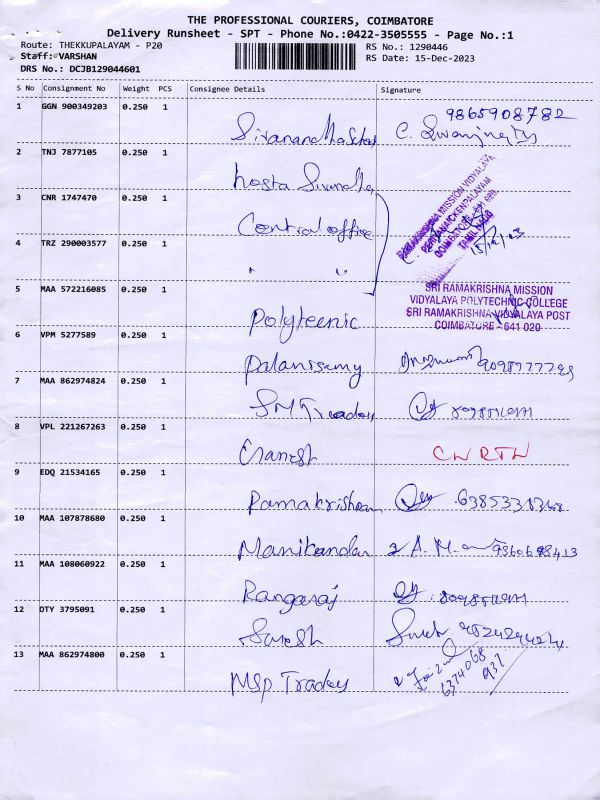 THE PROFESSIONAL COURIERS, COIMBATORE
Delivery Runsheet - SPT - Phone No.:0422-3505555 - Page No.:1
Route: THEKKUPALAYAM - P20
RS No.: 1290446
Staff: VARSHAN
RS Date: 15-Dec-2023
DRS No.: DCJB129044601
S No Consignment No Weight PCS Consignee Details Signature
1 GGN 900349203 0.250 1
9865908782
2 TNJ 7877105 0.250 1
hosta
3 CNR 1747470 0.250 1
Central office
RAMAKRISHNA MISSION VIDYALAYA
PERIYANAICKENPALAYAM
COIMBATORE - 641 020
TAMIL NADU
15/12/23
4 TRZ 290003577 0.250 1
" "
5 MAA 572216085 0.250 1
Polyteenic
SRI RAMAKRISHNA MISSION
VIDYALAYA POLYTECHNIC COLLEGE
SRI RAMAKRISHNA VIDYALAYA POST
COIMBATORE - 641 020
6 VPM 5277589 0.250 1
Palanisamy
7 MAA 862974824 0.250 1
SM Traders
8 VPL 221267263 0.250 1
Ganesh
CW RTN
9 EDQ 21534165 0.250 1
Ramakrishnan
10 MAA 107878680 0.250 1
Manikandan
11 MAA 108060922 0.250 1
Rangaraj
12 DTY 3795091 0.250 1
Suresh
13 MAA 862974800 0.250 1
Msp Traders
6374068
937